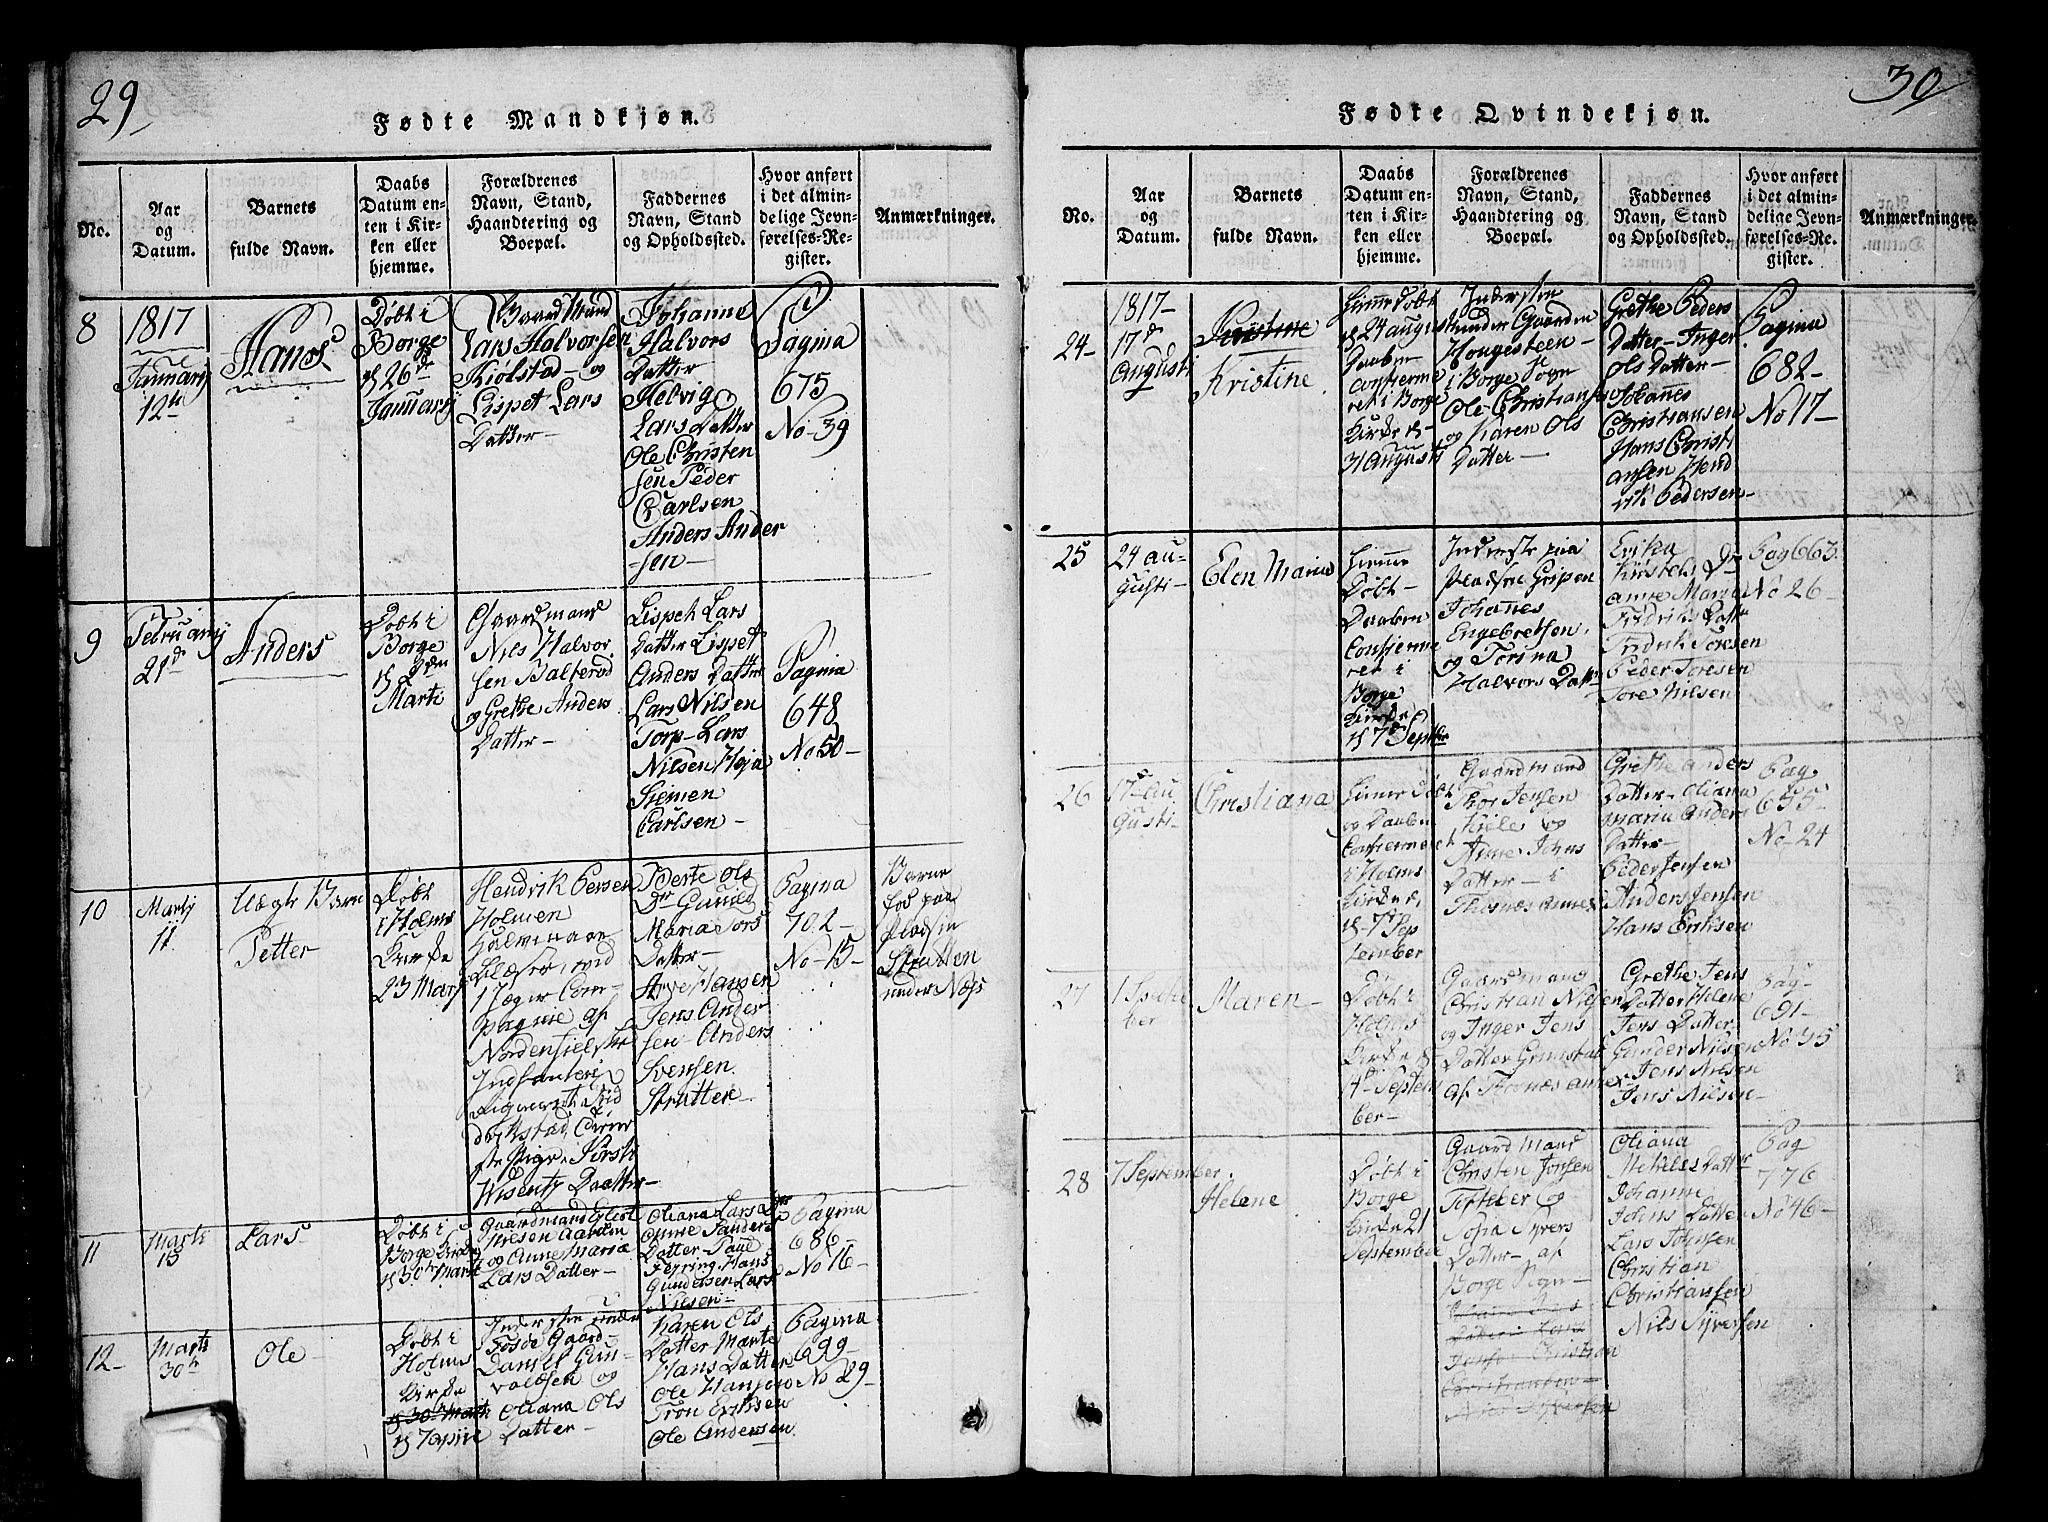 29
Fødte Mandkjøn.
No.
Aar
og
Datum.
Barnets
fulde Navn.
Daabs
Datum en-
ten i Kir-
ken eller
hjemme.
Forældrenes
Navn, Stand,
Haandtering og
Boepæl.
Faddernes
Navn, Stand
og Opholdssted.
Hvor anført
i det almin-
delige Jevn-
førelses-Re-
gister.
Anmærkninger.
8
1817
Januarij
12te
Hans
Døbt i
Borge
26de
Januarij
Gaardmand
Lars Halvorsen
Kiølstad og
Lispet Lars
Datter
Johanne
Halvors
Datter
Helvig
Lars Datter
Ole Christen
sen Peder
Carlsen
Anders Ander
sen
Pagina
675
No 39
9
Februarij
21de
Anders
Døbt i
Borge
2den
Marti
Gaardmand
Nils Halvor
sen Balterød
og Grethe Anders
Datter
Lispeth Lars
Datter Lispet
Anders Datter
Lars Nilsen
Torp Lars
Nilsen Høja
Siemen
Carlsen
Pagina
648
No 50
10
Martij
11
Uægte Barn
Petter
Døbt
i Holms
Kirke
23 Marti
Hendrik Persen
Holmen
Halvmaane
Blæser ved
1 Jæger Com-
pagnie af
Nordenfielske
Infanterie
Pige Kirsti
Wisentz Datter
Berte Ols
Dr Gunild
Maria Tors
Datter
Arve Hansen
Jens Ander
sen Anders
Svensen
Stratten
Pagina
702
No 15
Barne
fød paa
Pladsen
Stratten
under Næs
11
Marti
15
Lars
Døbt i
Borge Kirke
30te Marti
Gaardmand
og Anne Maria
Lars Datter
Oliana Lars Dr
Anne Sanders
Datter Poul
Feyring Hans
Gundersen Lars
Nilsen
Pagina
686
No 16
12
Marti
30te
Ole
Døbt i
Holms
Kirke
30te Marti
7 april
Inderste under
Fosse Gaard
Daniel Gun-
valdsen og
Oliana Ols
Datter
Karen Ols
Datter Marte
Hans Datter
Ole Hansen
Tron Eriksen
Ole Andersen
Pagina
699
No 29
30
Fødte Qvindekjøn.
No.
Aar
og
Datum.
Barnets
fulde Navn.
Daabs
Datum en-
ten i Kir-
ken eller
hjemme.
Forældrenes
Navn, Stand,
Haandtering og
Boepæl.
Faddernes
Navn, Stand
og Opholdssted.
Hvor anført
i det almin-
delige Jevn-
førelses-Re-
gister.
Anmærkninger.
24
1817
17de
Augusti
Kristine
Kristine
hiemme Døbt
24 augusti
Daaben
confierme
ret i Borge
Kirke
31 Augusti
Indersten
under Gaarden
Hougesteen
i Borge Sogn
Ole Christiansen
og Karen Ols
Datter
Grethe Peders
Datter Inger
Ols Datter
Johannes
Christiansen
Hans Christi
ansen Hend
rik Pedersen
Pagina
682
No 17
25
24 au-
gusti
Elen Maria
hiemme
Døbt
Daaben
Confierme
ret i
Borge
Kirke
7 Septber
Inderste paa
Pladsen Gripen
Johannes
Engebretsen
og Torina
Halvors Datter
Erika
Kristels Dr
Anne Marie
Fridriks Datter
Fridrik Toresen
Peder Toresen
Tore Nilsen
Pag 663
No 26
26
17 Au
gusti
Christiana
hiemme Døbt
og Daaben
Confiermeret
i Holms
Kirke
7 Sep
tember
Gaardmand
Thor Jensen
Kiøle og
Anne Johns
Datter i
Thorsnæs annex
Grethe Anders
Datter Oliana
Maria Anders
Datter
Peder Jensen
Anders Jensen
Hans Eriksen
Pag
655
No 24
27
1 Septe
ber
Maren
Døbt i
Holms
Kirke
14 Septem
ber
Gaardmand
Christian Nilsen
og Inger Jens
Datter Grimstad
af Thorsnæs annex
Grethe Jens
Datter Helene
Jens Datter
Gunder Nilsen
Jens Nilsen
Jens Nilsen
Pag
691
No 35
28
7 September
Helene
Døbt i
Borge
Kirke 21
September
Gaard Mand
Christen Jonsen
Tofteber og
Sofia Syvers
Datter af
Borge Sogn
Oliana
Mekels Datter
Johanne
Johns Datter
Lars Johnsen
Christian
Christiansen
Nils Syversen
Pag
776
No 46